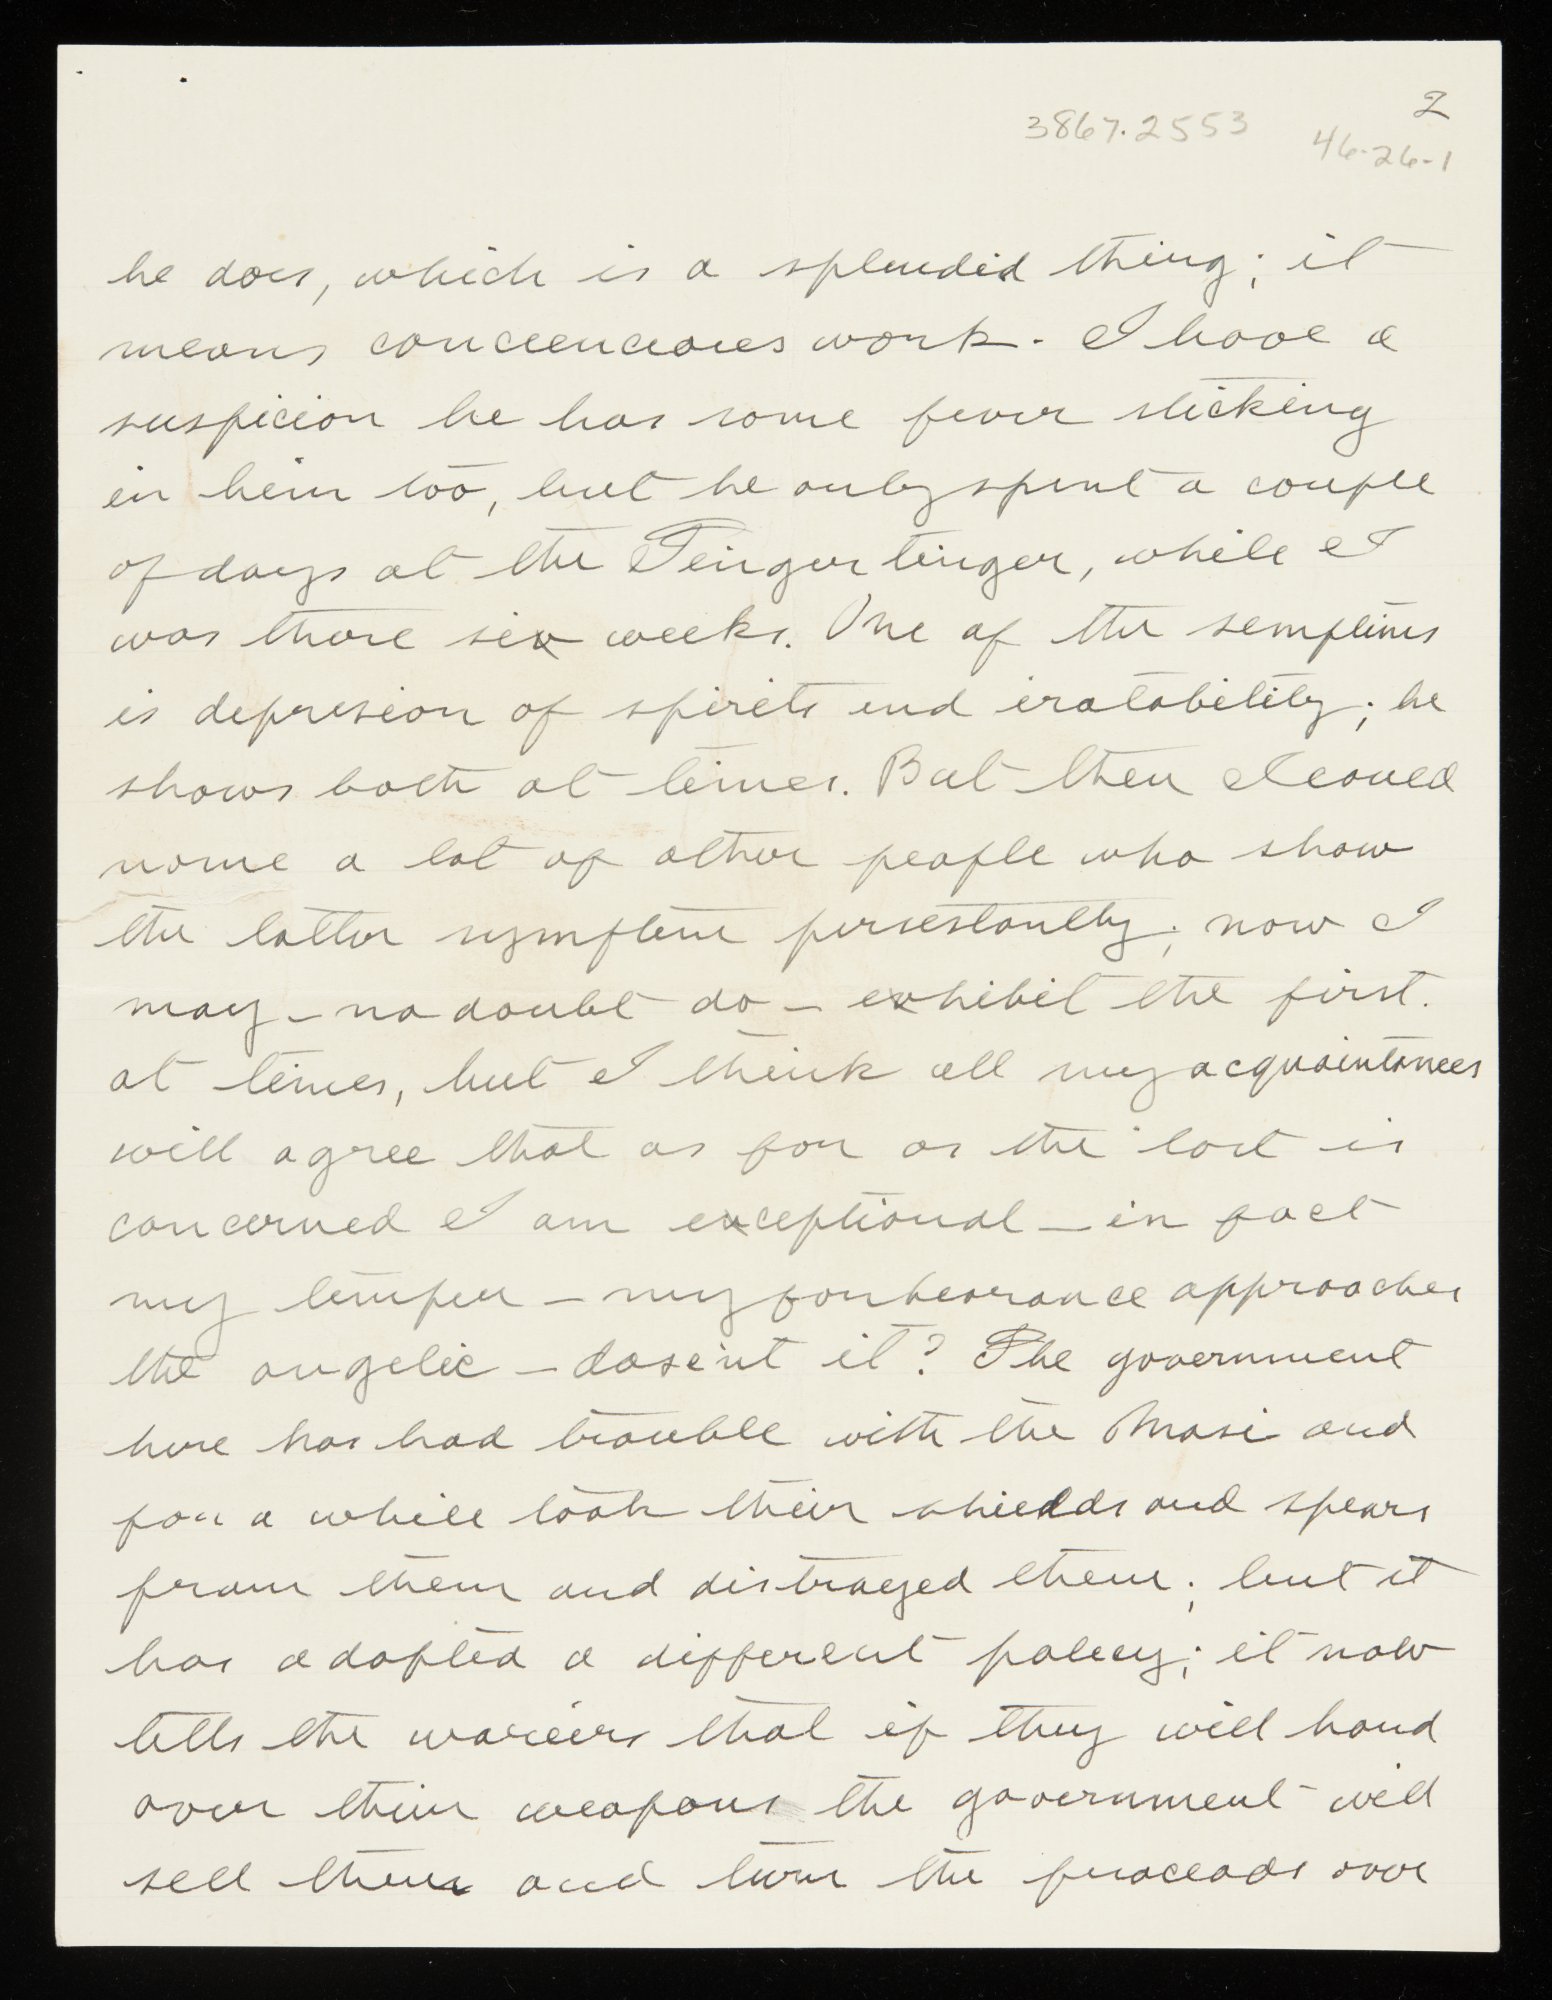 2
3867.2553
46-26-1
he does, which is a splendid thing; it
means conciencioues work. I have a
suspicion he has some fever sticking
in him too, but he only spent a couple
of days at the Tinger tinger, while I
was there six weeks. One of the semptims
is depresion of spirits and iratability; he
shows both at times. But then I could
name a lot of other people who show
the latter symptem persestantly; now I
may – no doubt do – exhibit the first.
at times, but I think all my acquaintances
will agree that as far as the last is
concerned I am exceptional – in fact
my temper – my forbearance approaches
the angelic – dose'nt it? The government
here has had trouble with the Masi and
for a while took their shields and spears
from them and distroyed them; but it
has adopted a different policy; it now
tells the wariers that if they will hand
over their weapons the government will
sell them and turn the proceads over